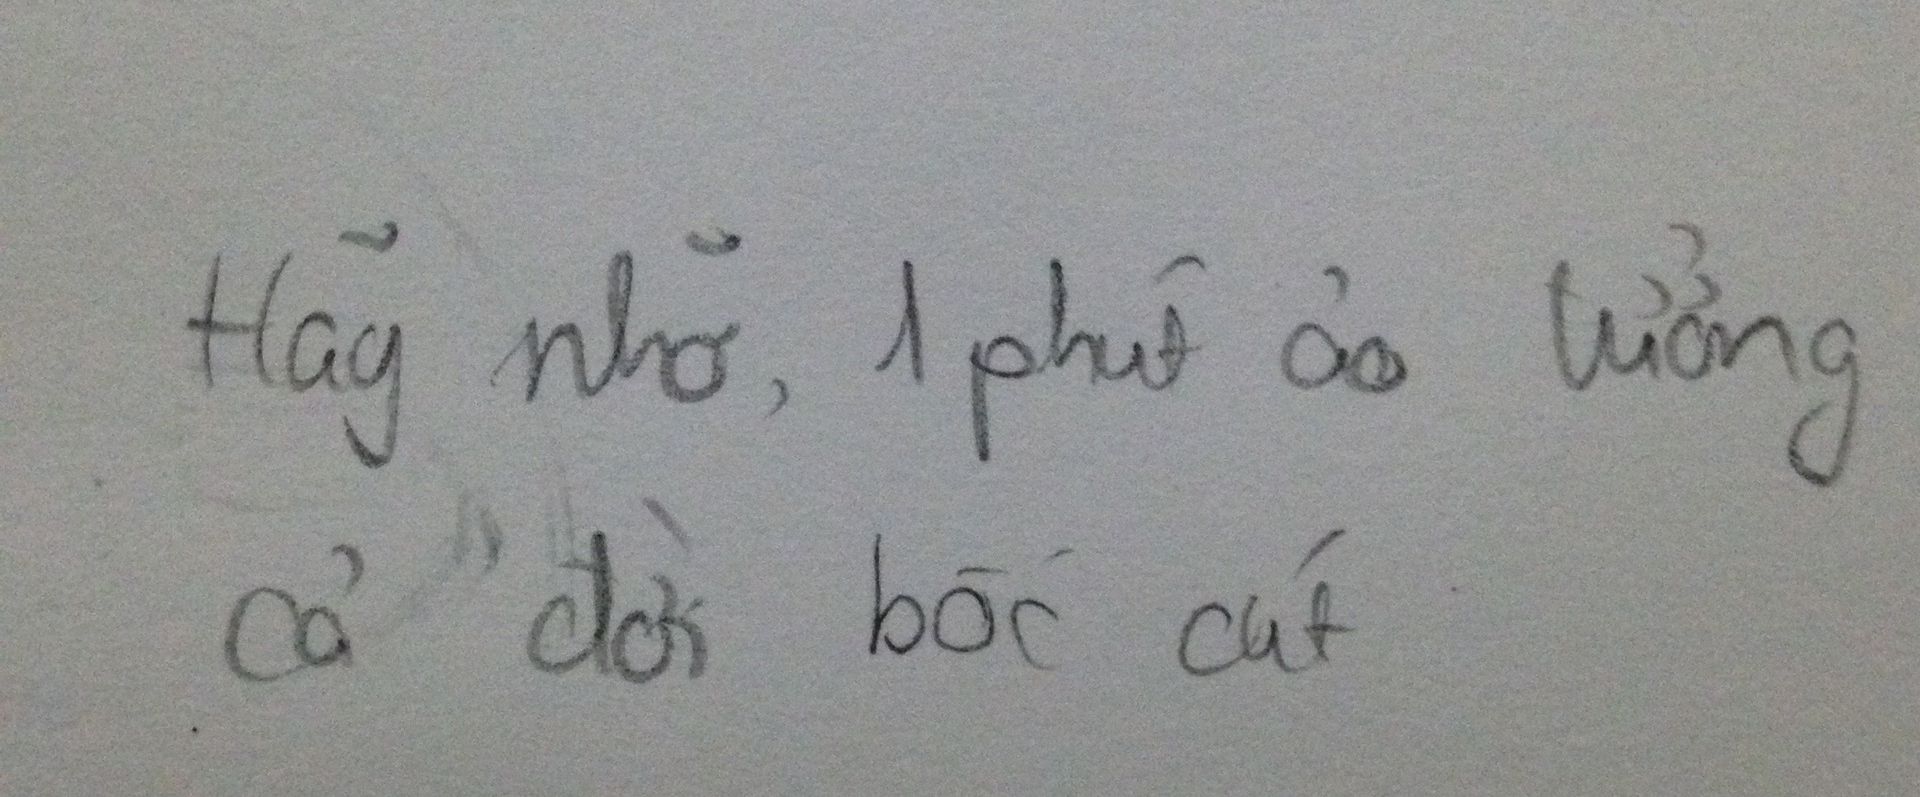 Hãy nhỡ, 1 phút ảo tưởng
cả đời bốc cứt